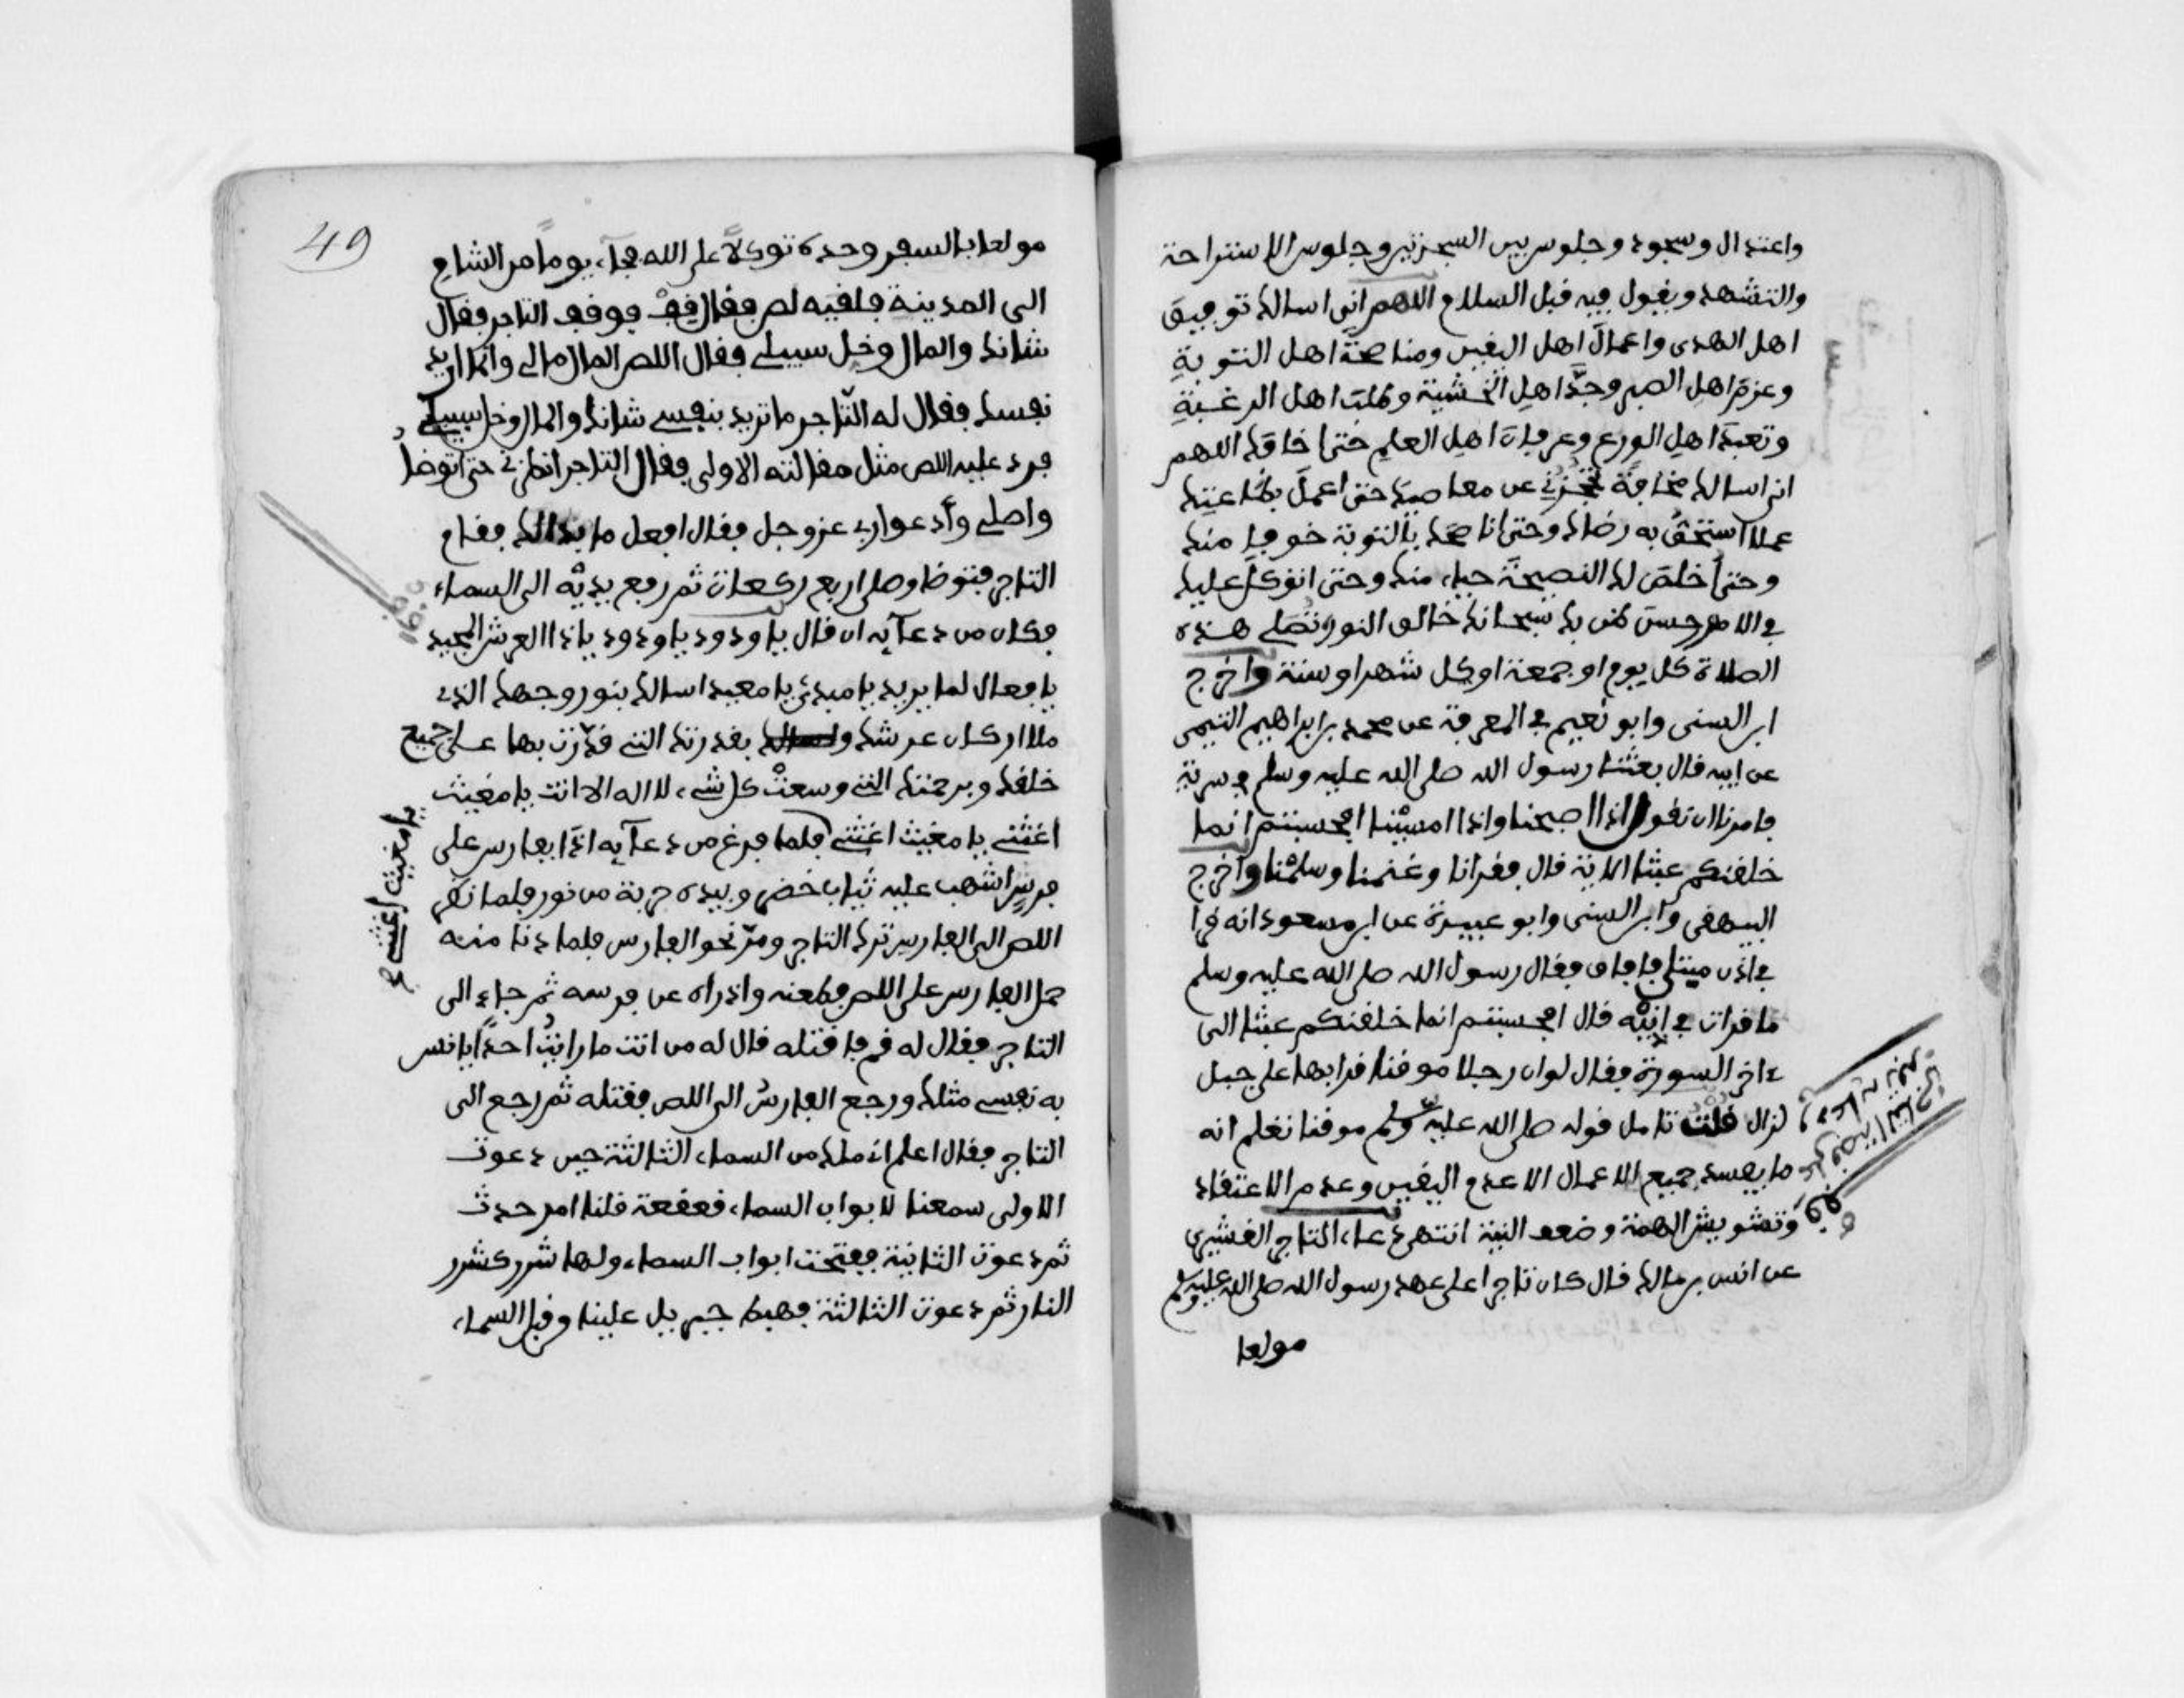 واعتدال وسجود وجلوس بين السجدتين وجلوس الاستراحة
والتشهد ويقول فيه قبل السلام اللهم اني اسالك توفيق
اهل الهدى واعمال اهل اليقين ومناصحة اهل التوبة
وعزم اهل الصبر وجد اهل الخشية وطلب اهل الرغبة
وتعبد اهل الورع وعرفان اهل العلم حتى اخافك اللهم
اني اسالك مخافة تحجزني عن معاصيك حتى اعمل بطاعتك
عملا استحق به رضاك وحتى اناصحك بالتوبة خوفا منك
وحتى اخلص لك النصيحة حياء منك وحتى اتوكل عليك
في الامور حسن ظن بك سبحانك خالق النور وتصلى هذه
الصلاة كل يوم او جمعة او كل شهر او سنة واخرج
ابن السنى وابو نعيم في المعرفة عن محمد بن ابراهيم التيمى
عن ابيه قال بعثنا رسول الله صلى الله عليه وسلم في سرية
فامرنا ان نقول اذا اصبحنا واذا امسينا افحسبتم انما
خلقنكم عبثا الاية قال فقرانا وغنمنا وسلمنا واخرج
البيهقي وابن السنى وابو عبيدة عن ابن مسعود انه قرا
في اذن مبتلى فافاق فقال رسول الله صلى الله عليه وسلم
ما قرات في اذنيه قال افحسبتم انما خلقنكم عبثا الى
ءاخر السورة فقال لو ان رجلا موقنا قرا بها على جبل
لزال قلت تامل قوله صلى الله عليه وسلم موقنا تعلم انه
ما يفسد جميع الاعمال الا عدم اليقين وعدم الاعتقاد
وتشويش الهمة وضعف النية انتهى دعاء التاجر القشيري
عن انس بن مالك قال كان تاجرا على عهد رسول الله صلى الله عليه وسلم
مولعا
قف على قصة التاجر
ودعايه
49
مولعا بالسفر وحده توكلا على الله فجاء يوما من الشام
الى المدينة فلقيه لص فقال قف فوقف التاجر فقال
شانك والمال وخل سبيلي فقال اللص المال مالي وانما اريد
نفسك فقال له التاجر ما تريد بنفسي شانك والمال وخل سبيلي
فرد عليه اللص مثل مقالته الاولى فقال التاجر انظرني حتى اتوضا
واصلي وأدعوا ربي عز وجل فقال افعل ما بدا لك فقام
التاجر فتوضا وصلى اربع ركعات ثم رفع يديه الى السماء
فكان من دعآيه ان قال يا ودود يا ودود يا ذا العرش المجيد
يا فعال لما يريد يا مبدئ يا معيد اسالك بنور وجهك الذي
ملا اركان عرشك واسالك بقدرتك التي قدرت بها على جميع
خلقك وبرحمتك التي وسعت كل شيء لا اله الا انت يا مغيث
اغثني يا مغيث اغثني فلما فرغ من دعآيه اذا بفارس على
فرس اشهب عليه ثياب خضر وبيده حربة من نور فلما نظر
اللص الى الفارس ترك التاجر ومر نحو الفارس فلما دنا منه
حمل الفارس على اللص فطعنه واذراه عن فرسه ثم جاء الى
التاجر فقال له قم فاقتله قال له من انت ما رايت احدا يانس
به نفسي مثلك ورجع الفارس الى اللص فقتله ثم رجع الى
التاجر فقال اعلم اني ملك من السماء الثالثة حين دعوت
الاولى سمعنا لابواب السماء قعقعة قلنا امر حدث
ثم دعوت الثانية ففتحت ابواب السماء ولها شرر كشرر
النار ثم دعوت الثالثة فهبط جبريل علينا من قبل السماء
يا مغيث اغثني